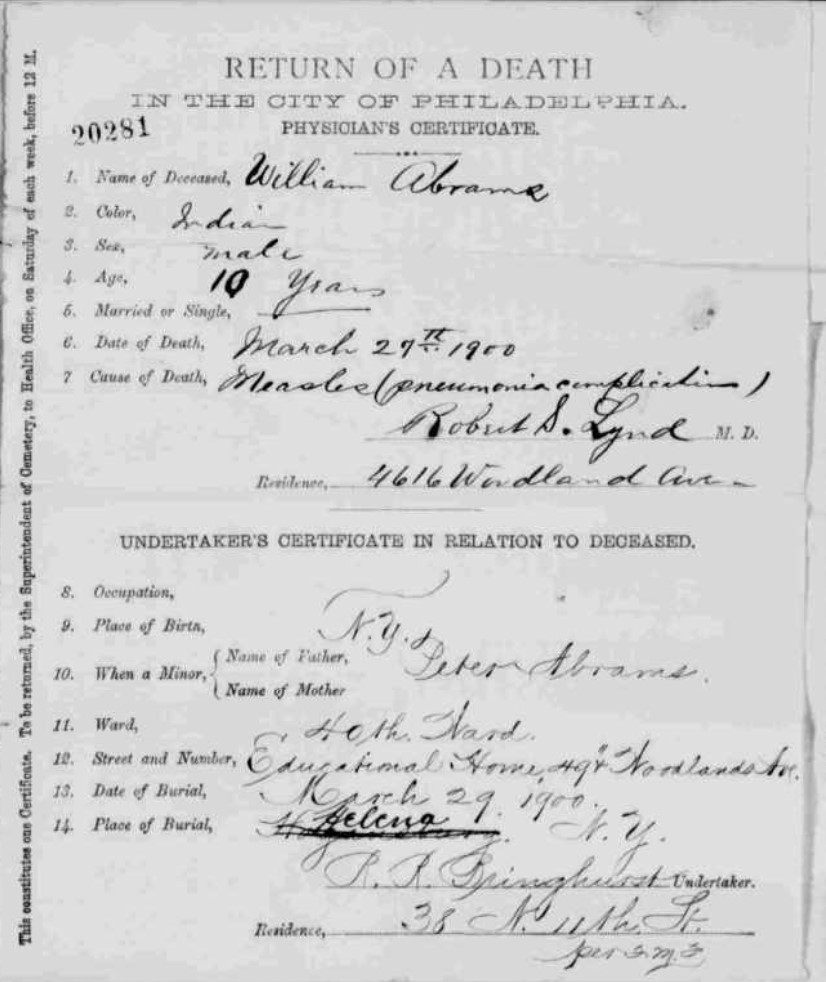 This constitutes one Certificate. To be returned, by the Superintendent of Cemetery, to Health Office, on Saturday of each week, before 12 M.
RETURN OF A DEATH
IN THE CITY OF PHILADELPHIA.
20281
PHYSICIAN'S CERTIFICATE.
1. Name of Deceased, William Abrams
2. Color, Indian
3. Sex, male
4. Age, 10 Years
5. Married or Single,
6. Date of Death, March 27th 1900
7 Cause of Death, Measles (pneumonia complication)
Robert S. Lynd M. D.
Residence, 4616 Woodland Ave
UNDERTAKER'S CERTIFICATE IN RELATION TO DECEASED.
8. Occupation,
9. Place of Birth, N.Y.
10. When a Minor, { Name of Father, Peter Abrams.
{ Name of Mother
11. Ward, 40th. Ward.
12. Street and Number, Educational Home, 49" & Woodlands Ave.
13. Date of Burial, March 29. 1900.
14. Place of Burial, Helena N.Y.
R. R. Bringhurst Undertaker.
Residence, 38 N. 11th. St.
per